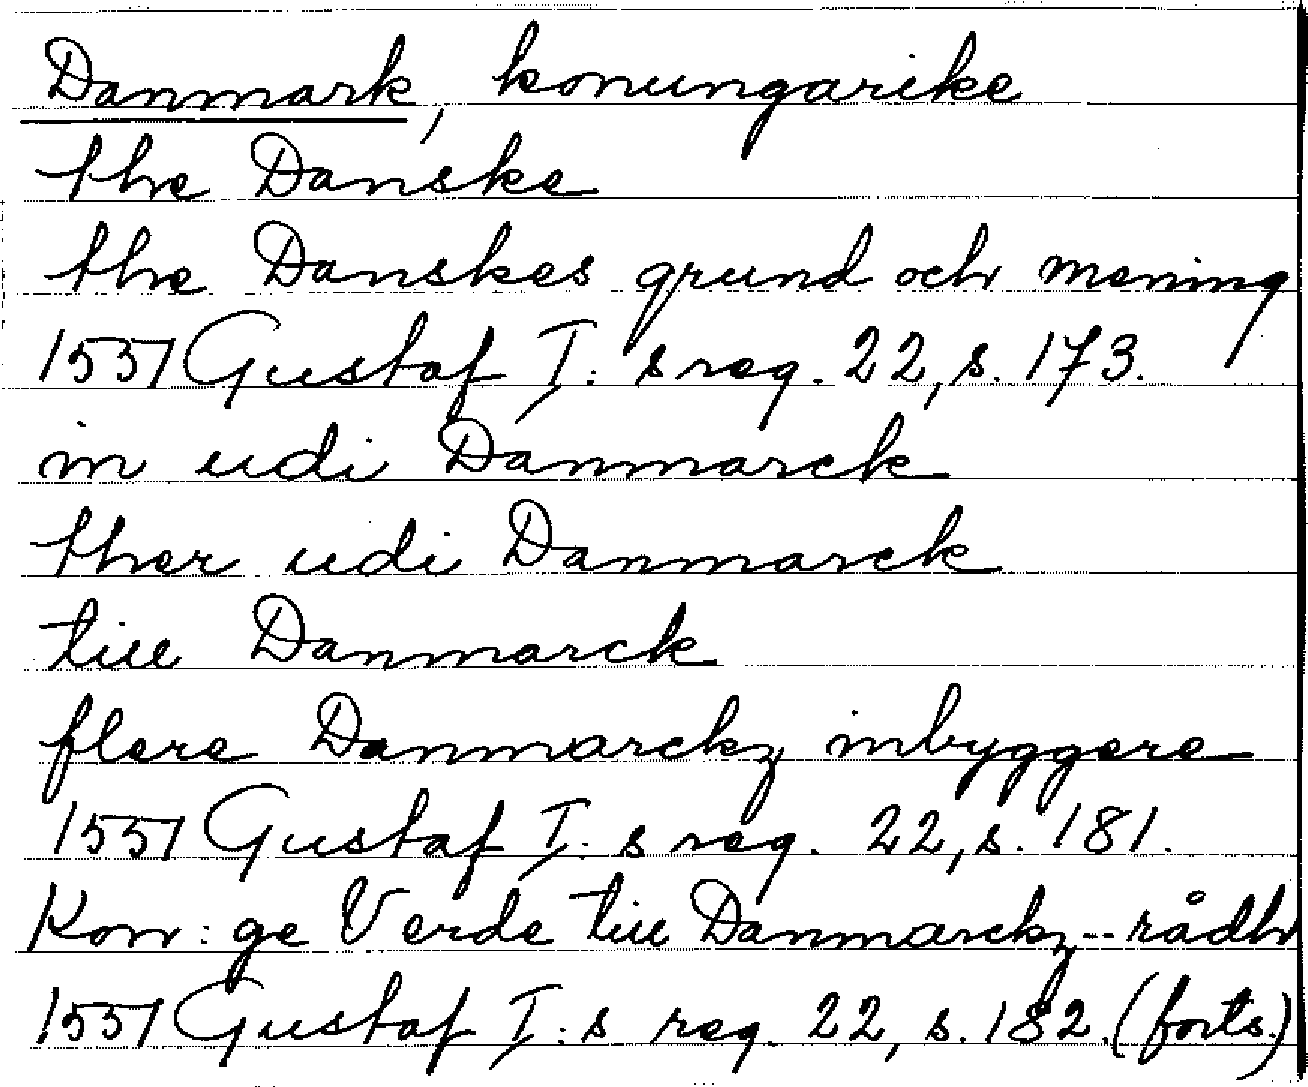 Danmark, konungarike
the Danske
the Danskes grund och mening
1551 Gustaf I: s reg. 22, s. 173.
in udi Danmarck
ther udi Danmarck
till Danmarck
flere Danmarckz inbyggere
1551 Gustaf I: s reg. 22, s. 181.
Kon: ge Verde till Danmarckz -- rådh
1551 Gustaf I: s reg. 22, s. 182. (forts.)